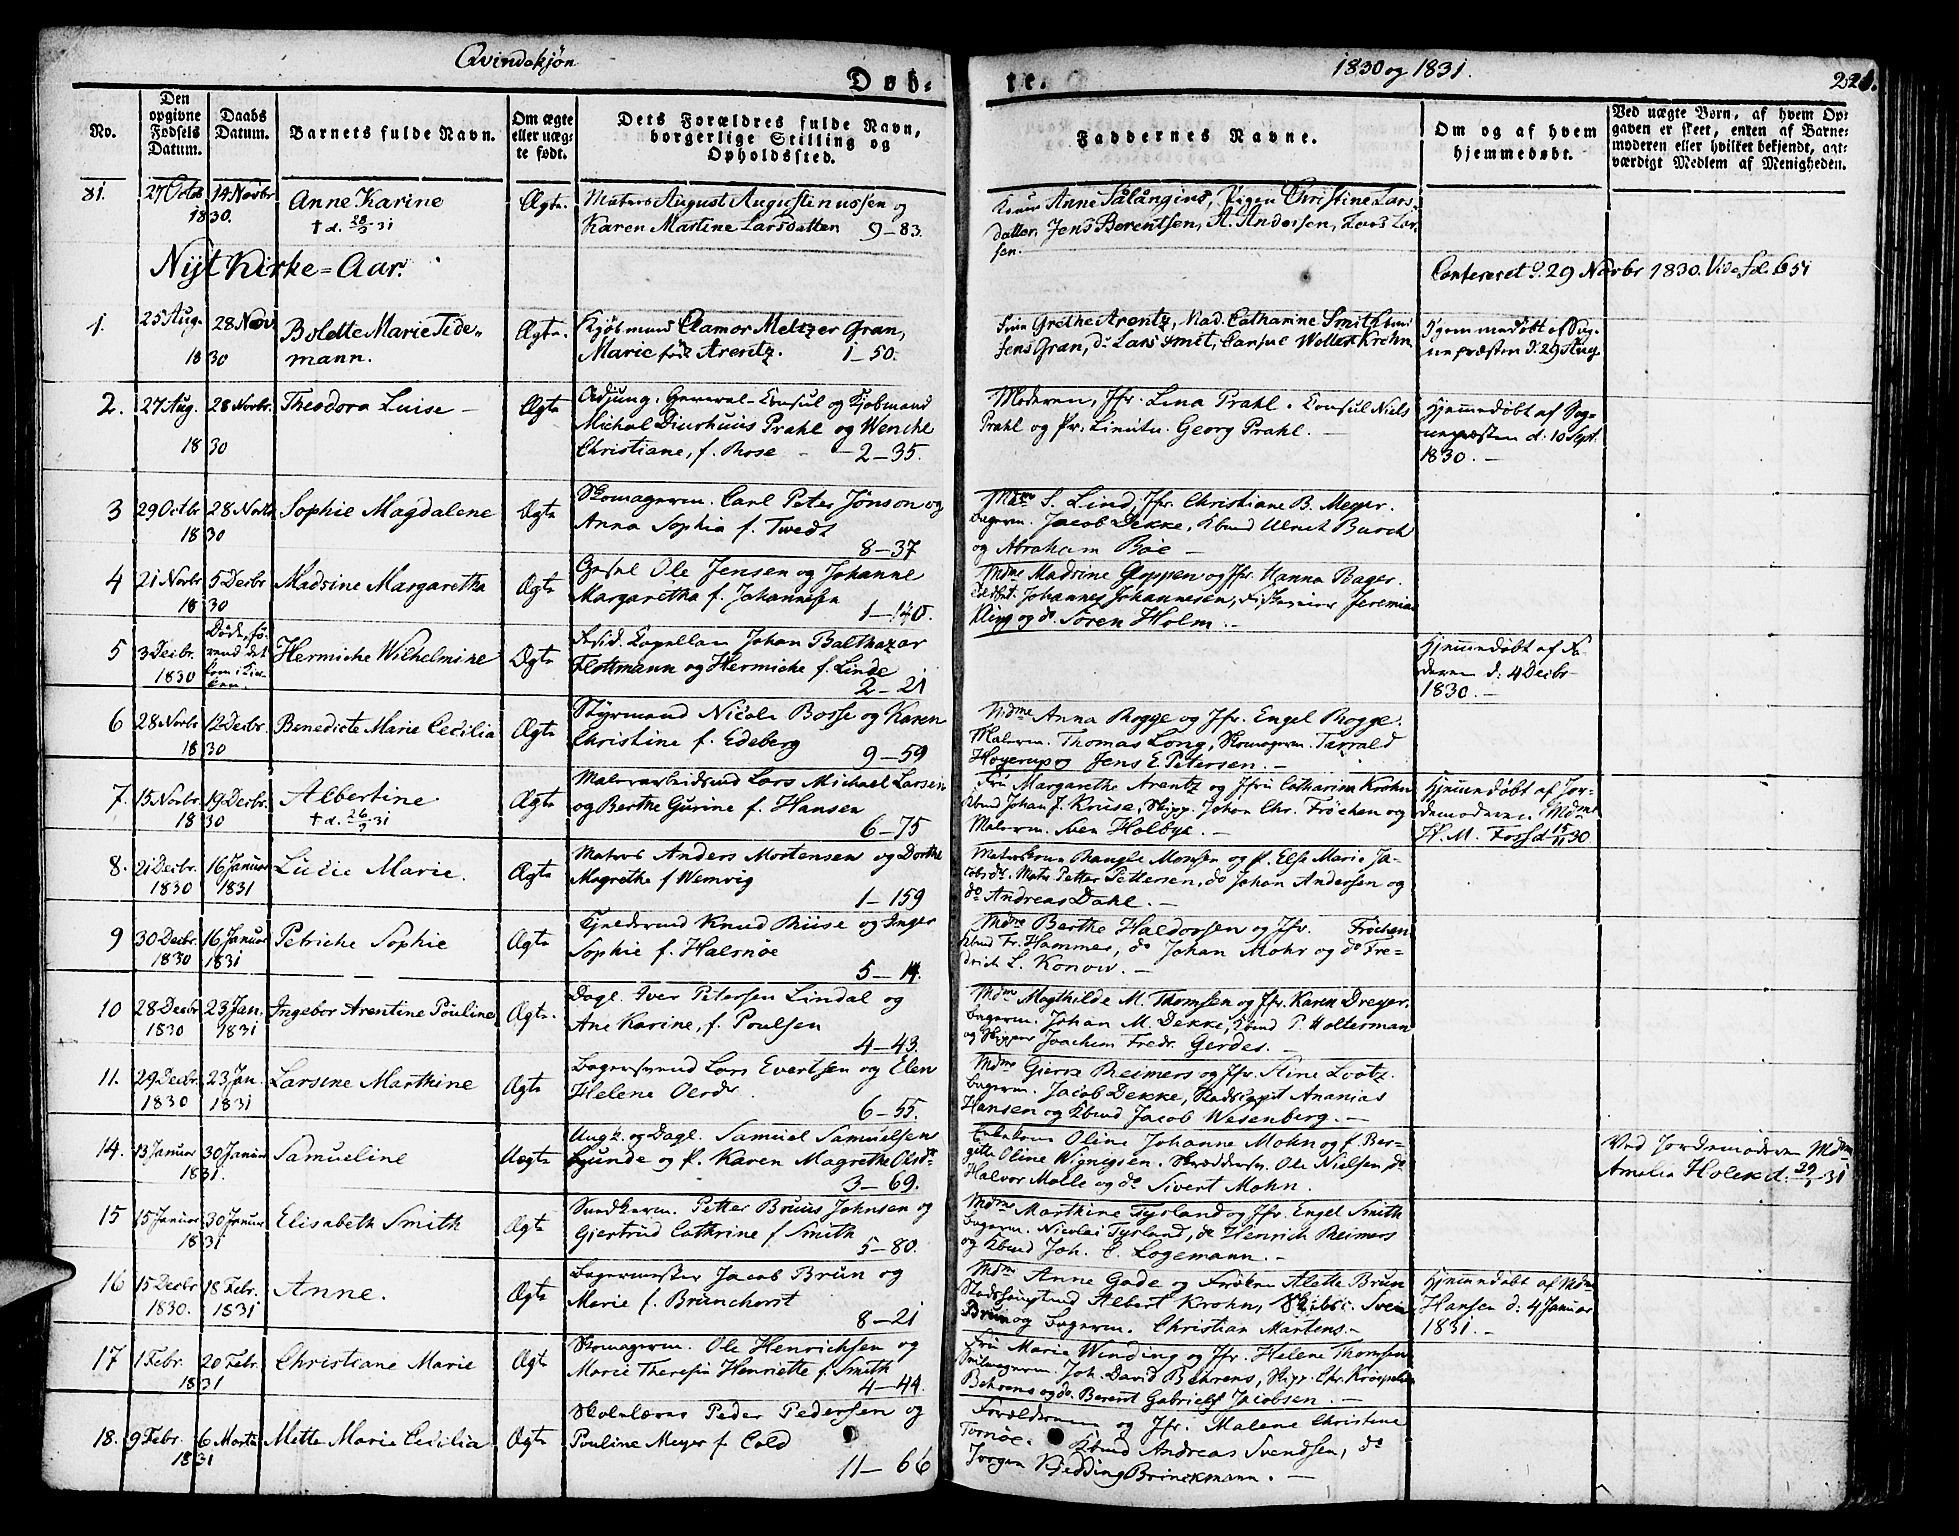 Qvindekjøn
Døb-
te.
1830 og 1831.
No.
Den opgivne Fødsels Datum.
Daabs Datum.
Barnets fulde Navn.
Om ægte eller uægte født.
Dets Forældres fulde Navn, borgerlige Stilling og Opholdssted.
Faddernes Navne.
Om og af hvem hjemmedøbt.
Ved uægte Børn, af hvem Opgaven er skeet, enten af Barnemoderen eller hvilket bekjendt, agtværdigt Medlem af Menigheden.
81. 27 Octb 1830. 14 Novbr Anne Karine Ægte. Matros August Augustinussen og
† d. 28/3 31 Karen Martine Larsdatter 9-83.
Anne Christine Lars
datter, Jens Berentsen, A. Andersen, Lars Lar
sen.
Nyt Kirke-Aar.
Confereret d. 29 Novbr 1830. Vide Fol. 651
1. 25 Aug. 1830 28 Nov Bolette Marie Tide- Ægte. Kjøbmand Clamor Meltzer Gran,
mann. Marie født Arentz. 1-50.
Grethe Arentz, Mad. Catharine Smith
Jens Gran, do Lars Smit, Consul Wollert Krohn
Hjemmedøbt af Sog-
nepræsten d. 29 Aug
2. 27 Aug. 1830 28 Novbr. Theodora Luise Ægte Adjung. General-Konsul og Kjøbmand
Michal Prahl og Wenche
Christiane, f. Rose 2-35.
Moderen, Jfr. Lina Prahl. Konsul Niels
Prahl og Georg Prahl.
Hjemmedøbt af Sog-
nepræsten d. 10 Sept.
1830.
3 29 Octbr 1830 28 Novbr Sophie Magdalene Ægte Skomagerm. Carl Peter Jönson og
Anna Sophia f. Twedt
8-37
Mdme S. Lind, Jfr. Christiane B. Meyer.
Bagerm. Jacob Dekke, Kbmd Ulrich Busch
og Abraham Böe
4 21 Novbr 1830 5 Decbr Madsine Margaretha Ægte Ole Jensen og Johanne
Margaretha f. Johannesen
1-140.
Mdme Madsine Gloppen og Jfr. Hanna Bager.
Johannes Johannesen, Jeremias
Kling og do Sören Holm.
5 3 Decbr. 1830 Døde, fö-
rend det
kom i Kir-
ken.
Hermiche Wilhelmine Ægte Resid. Capellan Johan Balthazar
Flottmann og Hermiche f. Linde
2-21
Hjemmedøbt af Fa-
deren d. 4 Decbr
1830.
6 28 Novbr 1830 12 Decbr. Benedicte Marie Cecilia Ægte Styrmand Nicolai Bosse og Karen
Christine f. Edeberg
9-59
Mdme Anna Rogge og Jfr. Engel Rogge.
Malerm. Thomas Long, Skomagerm. Tarrald
Høyerup og Jens E. Petersen.
7. 15 Novbr. 1830 19 Decbr. Albertine Ægte Malerarbeidsmd Lars Michael Larsen
† d. 26/3 31 og Berthe Gurine f. Hansen
6-75
Frü Margarethe Arentz og Jfrü Catharina Krohn
Kbmd Johan F. Kruse, Skipp. Johan Chr. Fröchen og
Malerm. Sven Holbye.
Hjemmedøbt af Jor-
demoderen, Mdme
H. M. Foss d. 15/11 30
8. 21 Decbr. 1830 16 Januar 1831 Lucie Marie. Ægte Matros Anders Mortensen og Dorthe
Magrethe f Wemvig
1-159
Matroskone Rangle Monsen og P. Else Marie Ja-
cobsdr. Matr. Petter Pettersen, do Johan Andersen og
do Andreas Dahl.
9 30 Decbr. 1830 16 Januar 1831 Petriche Sophie Ægte Knud Riise og Inger
Sophie f. Halsnöe
5-14.
Mdme Berthe Haldorsen og Jfr. Fröchen
Kbmd Fr. Hammer, do Johan Mohr og do Fre-
drich L. Konow.
10 28 Decbr 1830 23 Jan. 1831 Ingebor Arentine Pouline Ægte. Dagl. Iver Petersen Lindal og
Ane Karine, f. Poulsen
4-43.
Mdme Magthilde M. Thomsen og Jfr. Karen Dreyer.
Bagerm. Johan M. Dekke, Kbmd P. Holterman
og Skipper Joachim Fredr. Gerdes.
11. 29 Decbr. 1830 23 Jan 1831 Larsine Marthine Ægte Bagersvend Lars Evertsen og Elen
Helene Olsdr.
6-55.
Mdme Gierta Reimers og Jfr. Stine Lootz.
Bagerm. Jacob Dekke, Ananias
Hansen og Kbmd Jacob Wesenberg.
14. 13 Januar 1831. 30 Januar Samueline Uægte Ungk. og Dagl. Samuel Samuelsen
Lunde og P. Karen Magrethe Olsdr
3-69.
Oline Johanne Mohn og P. Ber-
gitte Oline Wignigsen. Skræddersv. Ole Nielsen, do
Halvor Molle og do Sivert Mohn.
Ved Jordemoderen Mdme
Amalia Holck d. 29/1 31
15 15 Januar 1831 30 Januar Elisabeth Smith Ægte Petter Bruus Johnsen og
Giertrud Cathrine f Smith
5-80.
Mdme Marthine Tysland og Jfr. Engel Smith
Bagerm. Nicolai Tysland, do Henrich Reimers
og Kbmd Joh. C. Logemann.
16 15 Decbr 1830. 18 Febr. 1831 Anne. Ægte Bagermester Jacob Brun og
Marie f. Brunchorst
8-21
Mdme Anne Gade og Fröken Alette Brun
Stadshauptmd Albert Krohn, Sven
Brun og Bagerm. Christian Martens.
Hjemmedøbt af Mdme
Hansen d. 4 Januar
1831.
17 1 Febr. 1831 20 Febr. Christiane Marie Ægte Skomagerm. Ole Henrichsen og
Marie Theresia Henriette f. Smith
4-44.
Frü Marie Wending og Jfr. Helene Thomsen
Seilmagerm. Joh. David Behrens, Skipp. Chr. Kröepelin
Behrens og do. Berent Gabriels Jacobsen.
18. 9 Febr. 1831 6 Marts Mette Marie Cecilia Ægte Skolelærer Peder Pedersen og
Pouline Meyer f. Cold
11-66
Forældrene og Jfr. Malene Christine
Tornöe. Kbmd Andreas Svendsen, do
Jörgen Hedding Brinckmann.